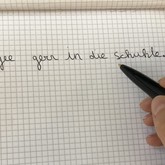 gern in die Schuhle.